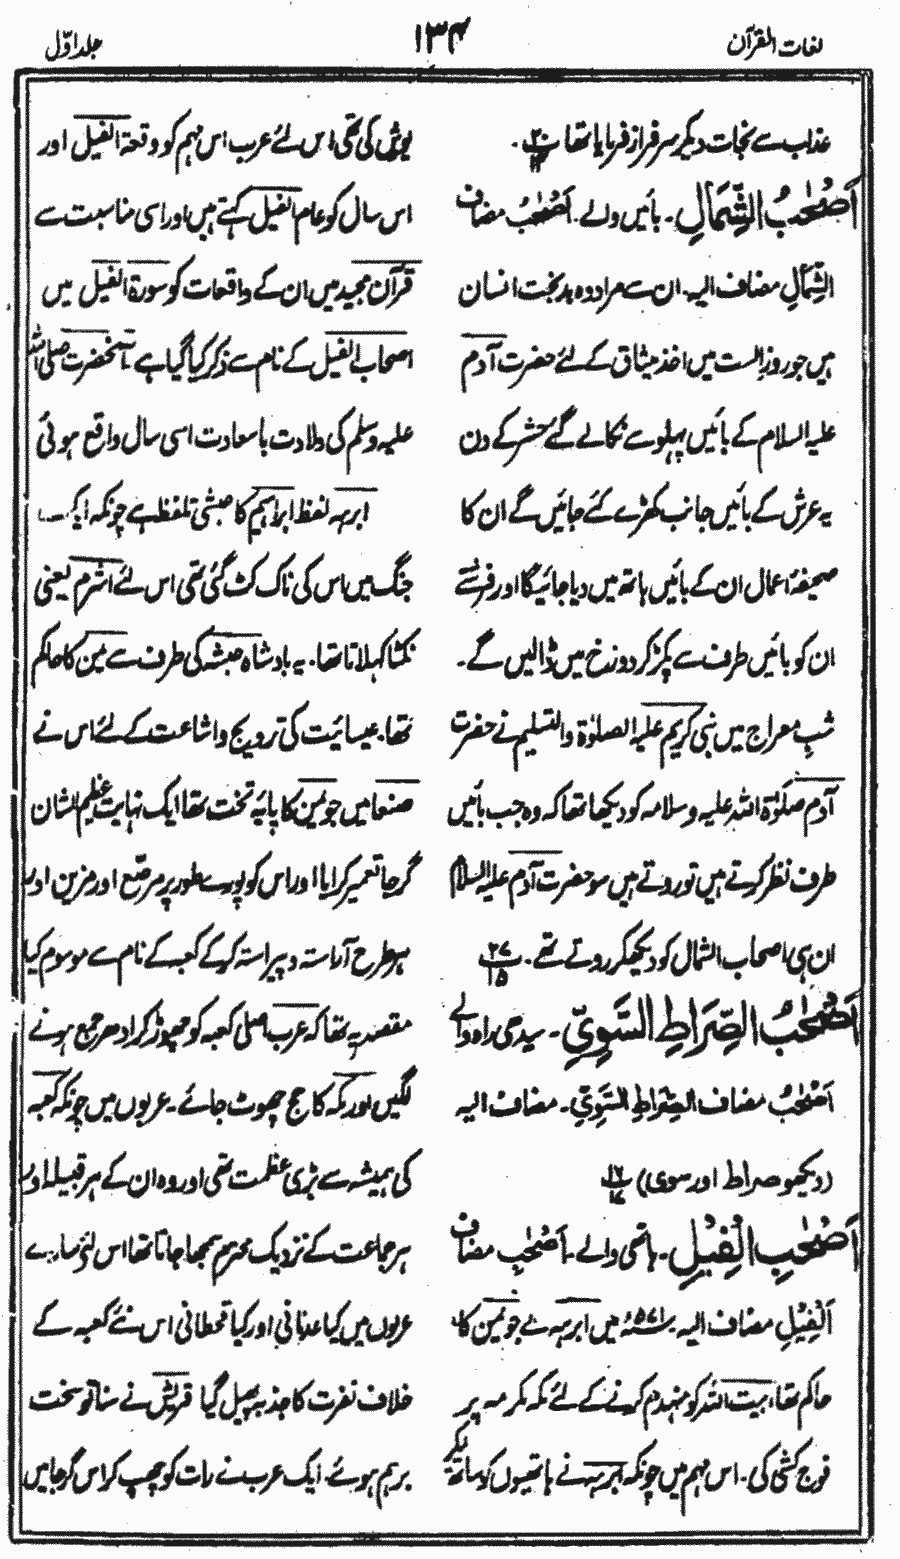 لغات القرآن
۱۳۴
جلد اوّل
عذاب سے نجات دیکر سرفراز فرمایا تھا
اَصْحٰبُ الشِّمَالِ ۔ بائیں والے ۔ اَصْحٰبُ مضاف
الشِّمَالِ مضاف الیہ۔ ان سے مراد وہ بدبخت انسان
ہیں جو روزِ الست میں اخذ میثاق کے لئے حضرت آدم
علیہ السلام کے بائیں پہلو سے نکالے گئے حشر کے دن
یہ عرش کے بائیں جانب کھڑے کئے جائیں گے ان کا
صحیفۂ اعمال ان کے بائیں ہاتھ میں دیا جائیگا اور فرشتے
ان کو بائیں طرف سے پکڑ کر دوزخ میں ڈالیں گے ۔
شبِ معراج میں نبی کریم علیہ الصلوٰۃ والتسلیم نے حضرت
آدم صلوٰۃ اللہ علیہ و سلامہ کو دیکھا تھا کہ وہ جب بائیں
طرف نظر کرتے ہیں تو روتے ہیں سو حضرت آدم علیہ السلام
ان ہی اصحاب الشمال کو دیکھ کر روتے تھے ۔ ۲۷ ۱۵
اَصْحٰبُ الصِّرَاطِ السَّوِيِّ ۔ سیدھی راہ والے
اَصْحٰبُ مضاف الصِّرَاطِ السَّوِيِّ ۔ مضاف الیہ
(دیکھو صراط اور سوی) ۱۷ ۱۶
اَصْحٰبِ الْفِيْلِ ۔ ہاتھی والے ۔ اَصْحٰبِ مضاف
اَلْفِيْلِ مضاف الیہ ۔ ۵۷۱ء میں ابرہہ نے جو یمن کا
حاکم تھا، بیت اللہ کو منہدم کرنے کے لئے مکہ مکرمہ پر
فوج کشی کی ۔ اس مہم میں چونکہ ابرہہ نے ہاتھیوں کو ساتھ لیکر
یورش کی تھی اس لئے عرب اس مہم کو وقعۃ الفیل اور
اس سال کو عام الفیل کہتے ہیں اور اسی مناسبت سے
قرآن مجید میں ان کے واقعات کو سورۃ الفیل میں
اصحاب الفیل کے نام سے ذکر کیا گیا ہے آنحضرت صلی اللہ
علیہ وسلم کی ولادت باسعادت اسی سال واقع ہوئی
ابرہہ لفظ ابراہیم کا حبشی تلفظ ہے چونکہ ایک
جنگ میں اس کی ناک کٹ گئی تھی اس لئے اشرم یعنی
نکٹا کہلاتا تھا۔ یہ بادشاہ حبشہ کی طرف سے یمن کا حاکم
تھا۔ عیسائیت کی ترویج و اشاعت کے لئے اس نے
صنعا میں جو یمن کا پایۂ تخت تھا ایک نہایت عظیم الشان
گرجا تعمیر کرایا اور اس کو پورے طور پر مرصّع اور مزین اور
ہر طرح آراستہ و پیراستہ کر کے کعبہ کے نام سے موسوم کیا
مقصد یہ تھا کہ عرب اصلی کعبہ کو چھوڑ کر ادھر جمع ہونے
لگیں اور مکہ کا حج چھوٹ جائے ۔ عربوں میں چونکہ کعبہ
کی ہمیشہ سے بڑی عظمت تھی اور وہ ان کے ہر قبیلہ اور
ہر جماعت کے نزدیک محترم سمجھا جاتا تھا اس لئے سارے
عربوں میں کیا عدنانی اور کیا قحطانی اس نئے کعبہ کے
خلاف نفرت کا جذبہ پھیل گیا قریش نے سنا تو سخت
برہم ہوئے ۔ ایک عرب نے رات کو چھپ کر اس گرجا میں